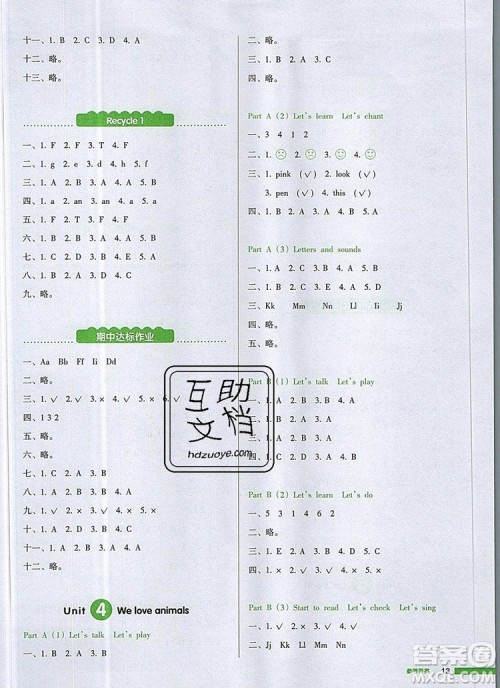 十一、1. B 2. C 3. D 4. A
十二、略。
十三、略。
Recycle 1
一、1. F 2. F 3. T 4. F
二、1. g 2. e 3. d 4. f
三、1. A 2. C 3. A 4. A 5. B
四、1. a 2. an 3. an 4. a
五、略。
六、1. B 2. B 3. A 4. B 5. A
七、1. C 2. D 3. A 4. B
八、1. F 2. T 3. T 4. F
九、略。
期中达标作业
一、Aa Bb Ff Ii Dd
二、略。
三、1. ✓ 2. ✓ 3. × 4. × 5. × 6. ✓
四、1 3 2
五、略。
六、略。
七、1. C 2. A 3. B
八、1. A 2. B 3. B 4. A
九、1. ✓ 2. × 3. × 4. ✓
十、1. B 2. A 3. B 4. A
十一、1. A 2. B 3. A 4. B
十二、略。
Unit 4 We love animals
Part A (1) Let's talk Let's play
一、1. B 2. A 3. B 4. A
二、略。
三、1. B 2. A 3. C
四、略。
Part A (2) Let's learn Let's chant
一、3 4 1 2
二、1. ☹ 2. ☹ 3. ☺ 4. ☺
三、1. pink (✓) 2. look (✓)
3. pen (✓) 4. this (✓)
四、1. B 2. A 3. C 4. B 5. A
Part A (3) Letters and sounds
一、1. B 2. A 3. B 4. A
二、1. D 2. A 3. C 4. B
三、Kk Mm Nn Ll Ii Jj
四、略。
五、略。
Part B (1) Let's talk Let's play
一、1. A 2. B 3. A 4. B
二、1. B 2. A 3. A 4. A
三、1. × 2. ✓ 3. × 4. ✓
四、1. C 2. D 3. A 4. B
Part B (2) Let's learn Let's do
一、5 3 1 4 6 2
二、略。
三、1. E 2. A 3. D 4. B 5. C
四、1. × 2. ✓ 3. ✓ 4. ×
Part B (3) Start to read Let's check Let's sing
一、1. B 2. A 3. B 4. A
互助
文档
hdzuoye.com
参考答案 13
答案圈
MXQE.COM